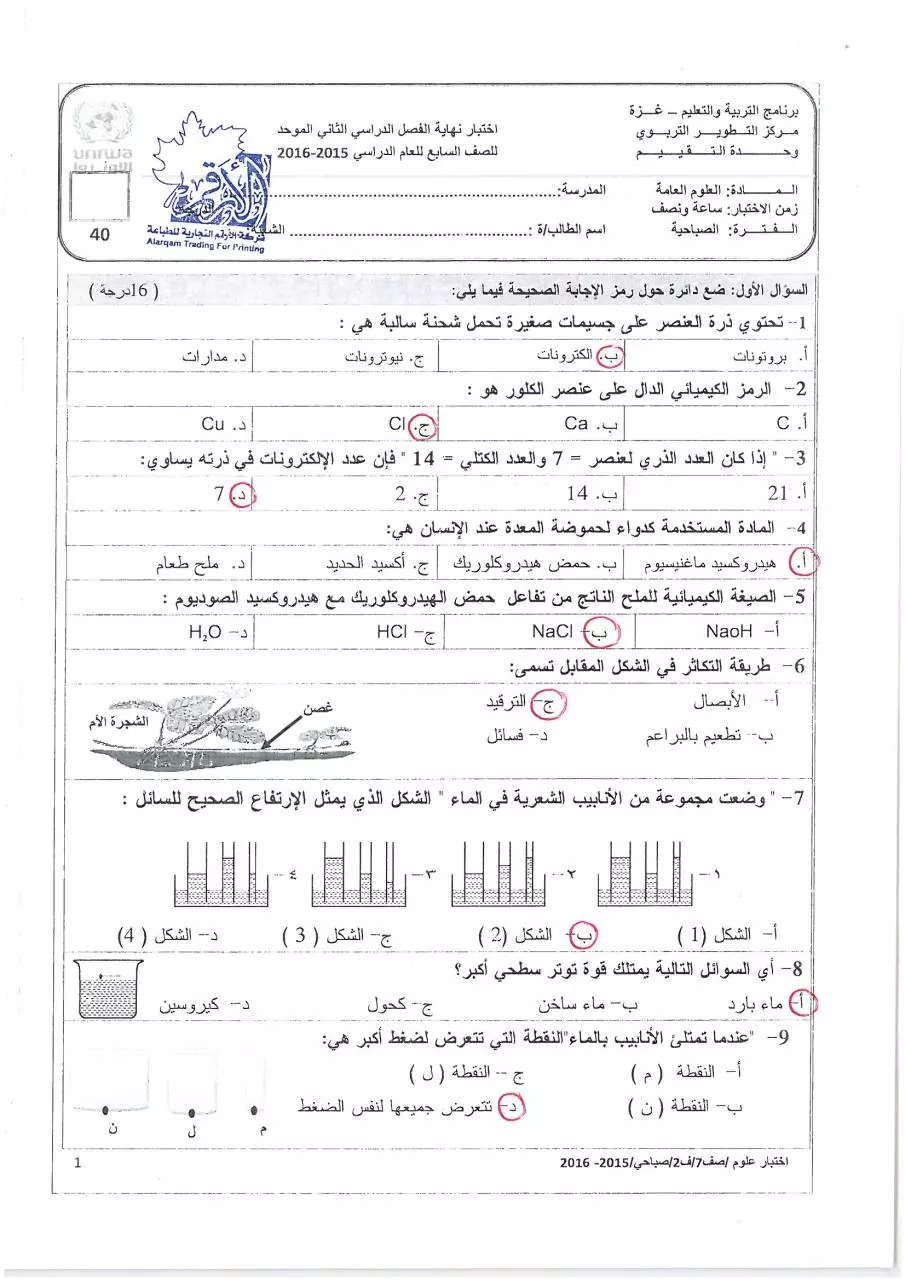 برنامج التربية والتعليم – غـــزة
مـركـز التــطويـــر التربـوي
وحـــــدة التـــقـيـيـــم
اختبار نهاية الفصل الدراسي الثاني الموحد
للصف السابع للعام الدراسي 2015-2016
unrwa
الأونروا
المــــــادة: العلوم العامة
زمن الاختبار: ساعة ونصف
الــفــتــرة: الصباحية
المدرسة:
اسم الطالب/ة :
الشعبة:
الدرجة
40
الأرقم
شركة الأرقم التجارية للطباعة
Alarqam Trading For Printing
السؤال الأول: ضع دائرة حول رمز الإجابة الصحيحة فيما يلي: ( 16درجة )
1- تحتوي ذرة العنصر على جسيمات صغيرة تحمل شحنة سالبة هي :
أ. بروتونات ب. الكترونات ج. نيوترونات د. مدارات
2- الرمز الكيميائي الدال على عنصر الكلور هو :
أ. C ب. Ca ج. Cl د. Cu
3- " إذا كان العدد الذري لعنصر = 7 والعدد الكتلي = 14 " فإن عدد الإلكترونات في ذرته يساوي:
أ. 21 ب. 14 ج. 2 د. 7
4- المادة المستخدمة كدواء لحموضة المعدة عند الإنسان هي:
أ. هيدروكسيد ماغنيسيوم ب. حمض هيدروكلوريك ج. أكسيد الحديد د. ملح طعام
5- الصيغة الكيميائية للملح الناتج من تفاعل حمض الهيدروكلوريك مع هيدروكسيد الصوديوم :
أ- NaoH ب- NaCl ج- HCl د- H₂O
6- طريقة التكاثر في الشكل المقابل تسمى:
أ- الأبصال ج- الترقيد
ب- تطعيم بالبراعم د- فسائل
غصن
الشجرة الأم
7- " وضعت مجموعة من الأنابيب الشعرية في الماء " الشكل الذي يمثل الإرتفاع الصحيح للسائل :
١- ٢- ٣- ٤-
أ- الشكل (1 ) ب- الشكل (2 ) ج- الشكل ( 3 ) د- الشكل ( 4)
8- أي السوائل التالية يمتلك قوة توتر سطحي أكبر؟
أ- ماء بارد ب- ماء ساخن ج- كحول د- كيروسين
9- "عندما تمتلئ الأنابيب بالماء"النقطة التي تتعرض لضغط أكبر هي:
أ- النقطة ( م ) ج - النقطة ( ل )
ب- النقطة ( ن ) د- تتعرض جميعها لنفس الضغط
م ل ن
اختبار علوم /صف7/ف2/صباحي/2015- 2016
1